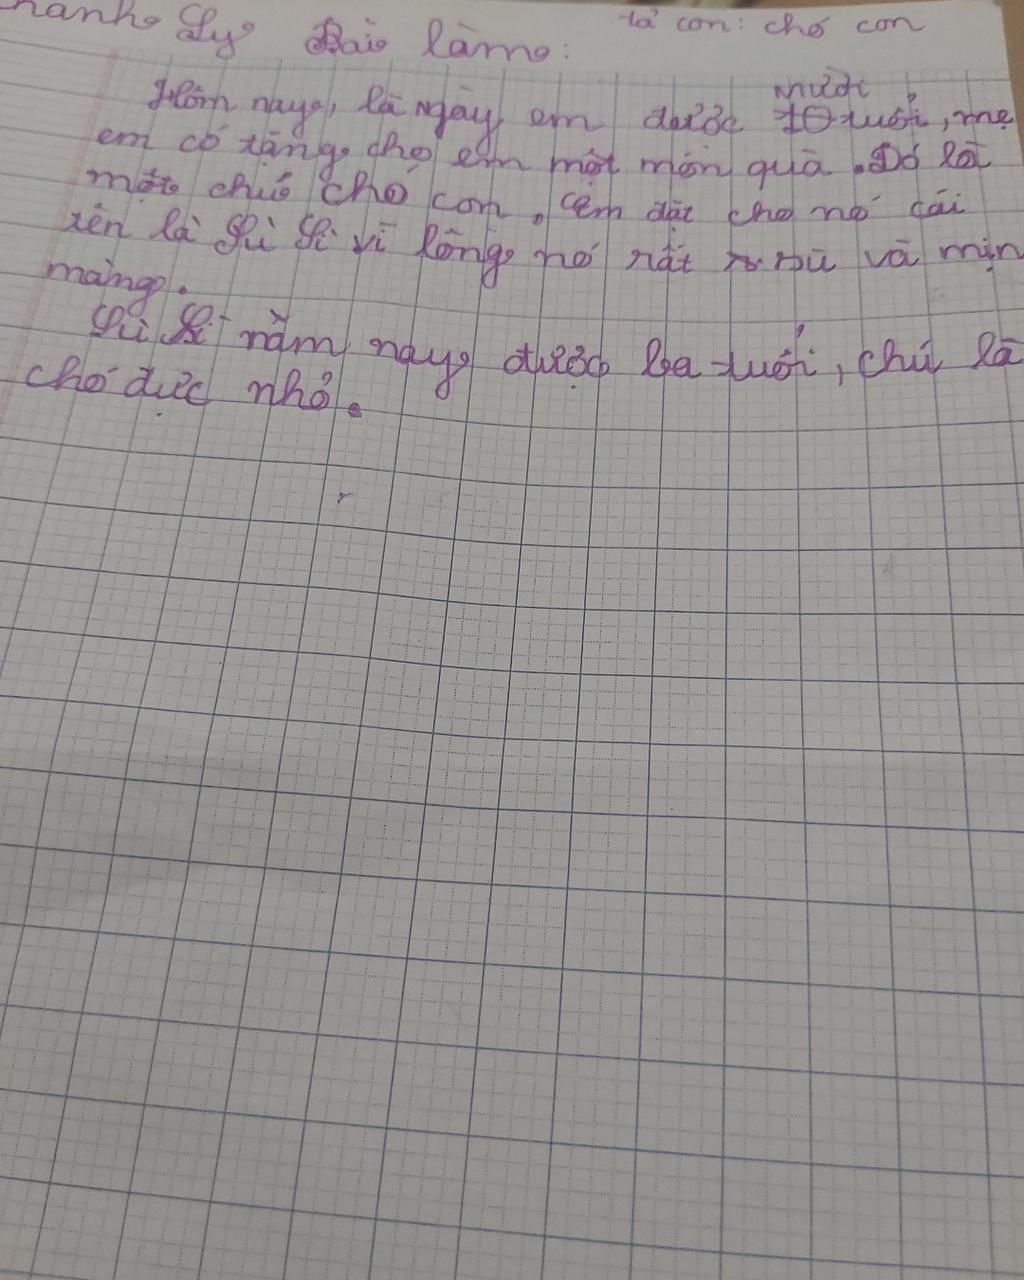 Thanh Ly Bài làm: tả con: chó con
mười
Hôm nay, là ngày em được 10 tuổi, mẹ
em có tặng cho em một món quà. Đó là
một chú chó con, em đặt cho nó cái
tên là Lù Lì vì lông nó rất xù và mịn
màng.
Lù Lì năm nay được ba tuổi, chú là
chó đực nhỏ.